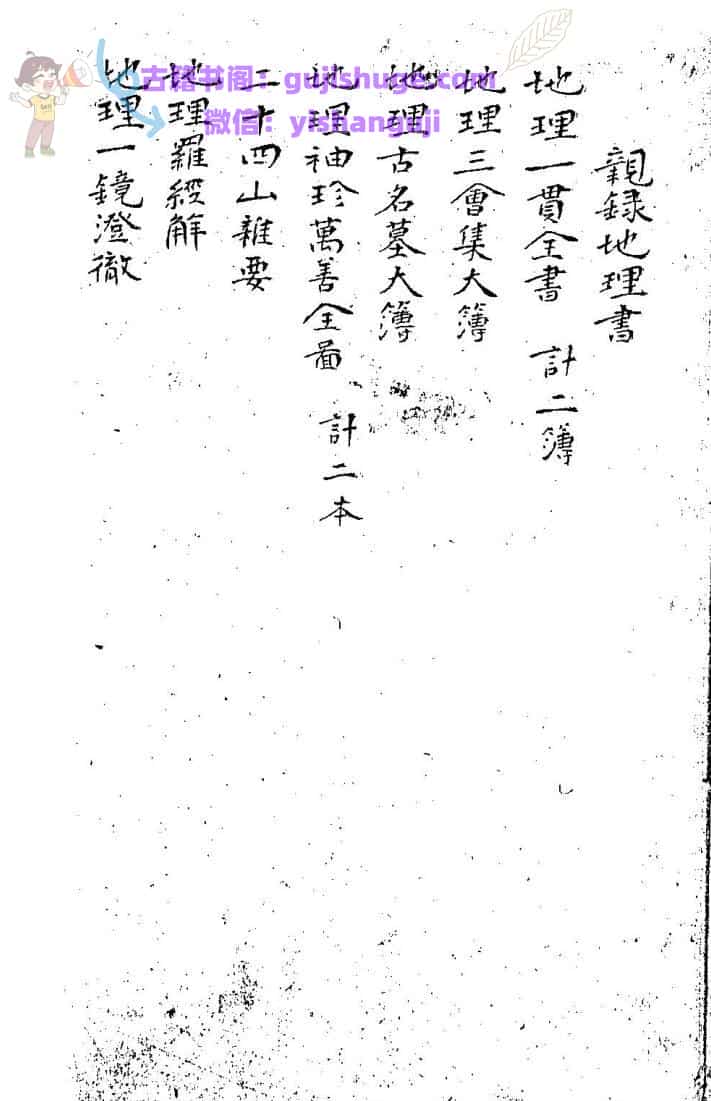 親錄地理書
地理一貫全書 計二簿
地理三會集大簿
地理古名墓大簿
地理袖珍萬善全啚 計二本
二十四山雜要
地理羅經解
地理一鏡澄徹
古籍书阁：gujishuge.com
微信：yishanguji